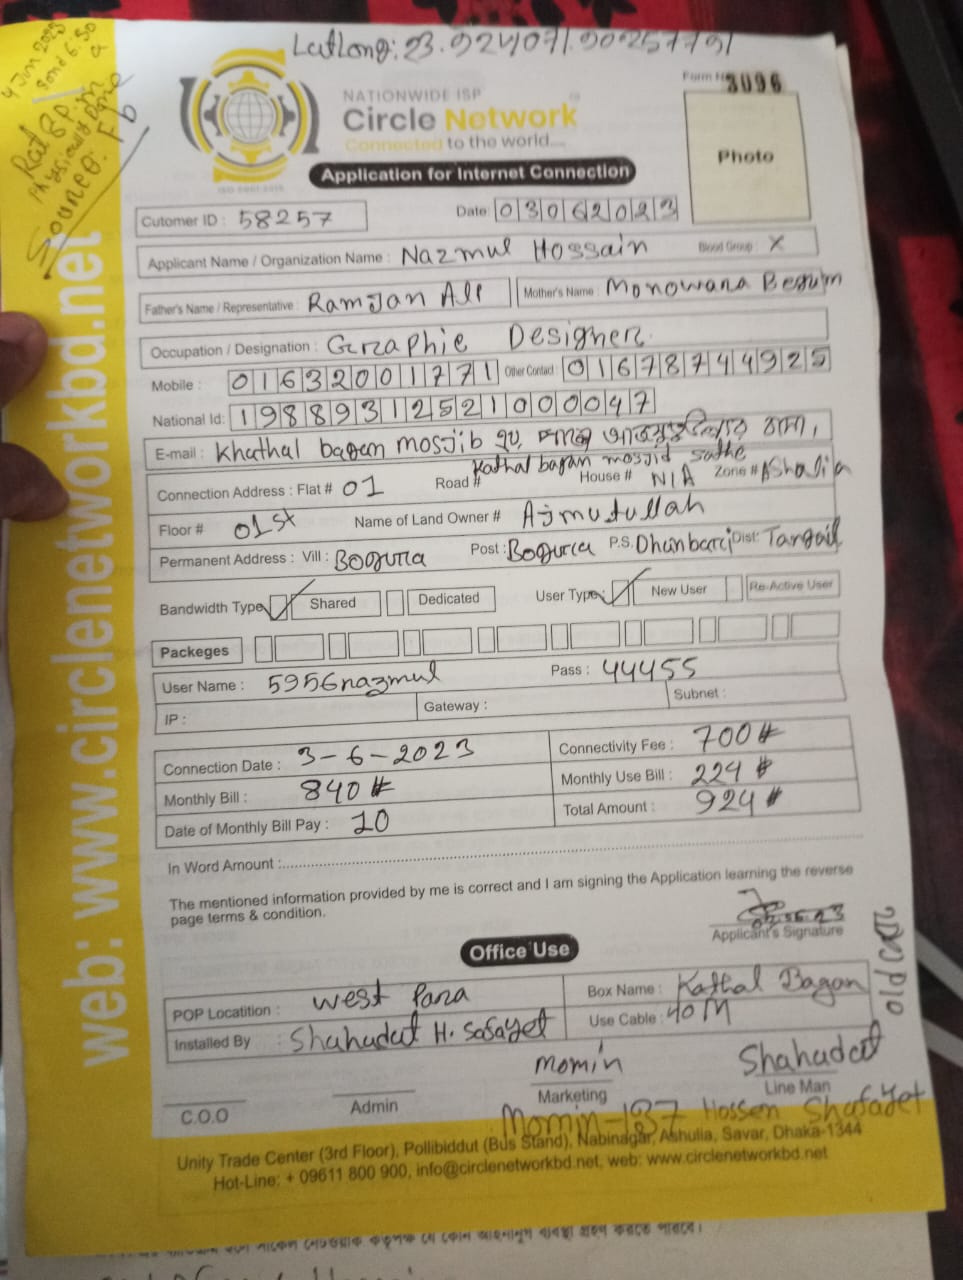 LatLong: 23.924071.90.257791
4 Jun 2023
Source: Fb
Form No 3096
NATIONWIDE ISP
Circle Network
Connected to the world....
ISO 9001:2015
Photo
Application for Internet Connection
Cutomer ID : 58257 Date: 03062023
Applicant Name / Organization Name : Nazmul Hossain Blood Group : X
Father's Name / Representative : Ramjan Ali Mother's Name : Monowara Begum
Occupation / Designation : Graphic Designer.
Mobile : 01632001771 Other Contact : 01678744925
National Id: 19889312521000047
E-mail : Khathal bagan mosjib
Kathal bagan mosjid sathe
Connection Address : Flat # 01 Road # House # N/A Zone # Ashulia
Floor # 01st Name of Land Owner # Ajmutullah
Permanent Address : Vill : Bogura Post : Bogura P.S. Dhanbari Dist: Tangail
Bandwidth Type: Shared Dedicated User Type: New User Re-Active User
Packeges
User Name : 5956nazmul Pass : 44455
IP : Gateway : Subnet :
Connection Date : 3-6-2023 Connectivity Fee : 700#
Monthly Bill : 840# Monthly Use Bill : 224#
Date of Monthly Bill Pay : 10 Total Amount : 924#
In Word Amount :
The mentioned information provided by me is correct and I am signing the Application learning the reverse
page terms & condition.
Applicant's Signature
Office Use
POP Locatition : West Para Box Name : Kathal Bagan
Installed By : Shahadat H. Safayet Use Cable : 40M
C.O.O Admin Momin Marketing Shahadat Line Man
Momin-187 Hossen Shafayet
Unity Trade Center (3rd Floor), Pollibiddut (Bus Stand), Nabinagar, Ashulia, Savar, Dhaka-1344
Hot-Line: + 09611 800 900, info@circlenetworkbd.net, web: www.circlenetworkbd.net
web: www.circlenetworkbd.net